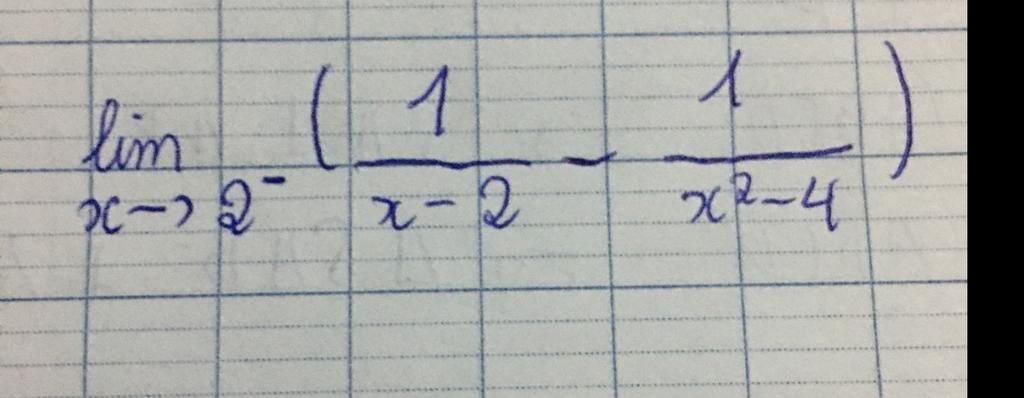 lim x→2⁻ ( 1/(x-2) - 1/(x²-4) )